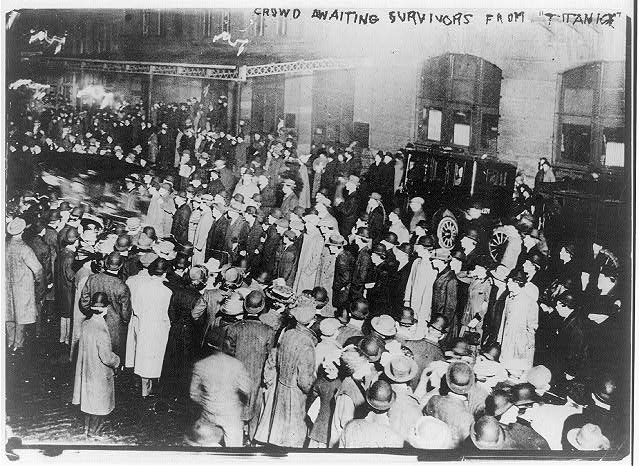 CROWD AWAITING SURVIVORS FROM "TITANIC"